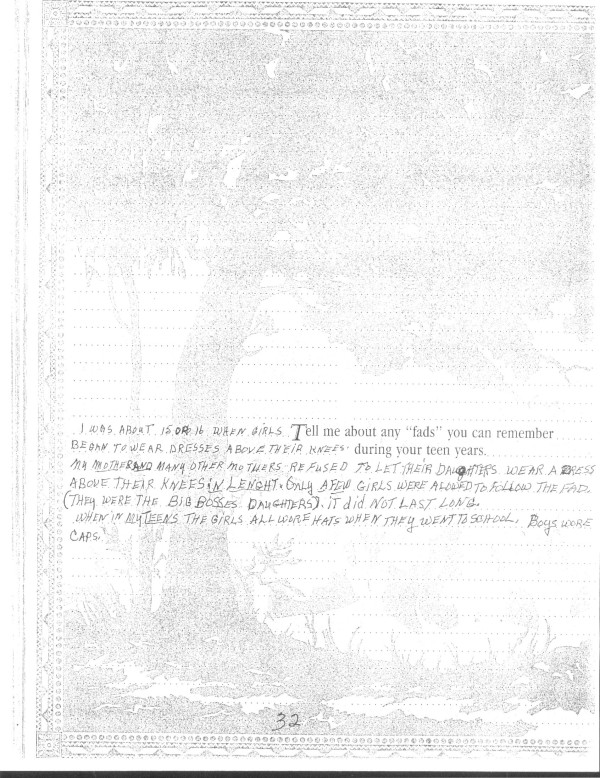 Tell me about any "fads" you can remember
during your teen years.
I WAS ABOUT 15 OR 16 WHEN GIRLS
BEGAN TO WEAR DRESSES ABOVE THEIR KNEES.
MY MOTHER AND MANY OTHER MOTHERS REFUSED TO LET THEIR DAUGHTERS WEAR A DRESS
ABOVE THEIR KNEES IN LENGHT. ONLY A FEW GIRLS WERE ALLOWED TO FOLLOW THE FAD.
(THEY WERE THE BIG BOSSES DAUGHTERS). IT did NOT LAST LONG.
WHEN IN MY TEENS THE GIRLS ALL WORE HATS WHEN THEY WENT TO SCHOOL. BOYS WORE
CAPS.
32